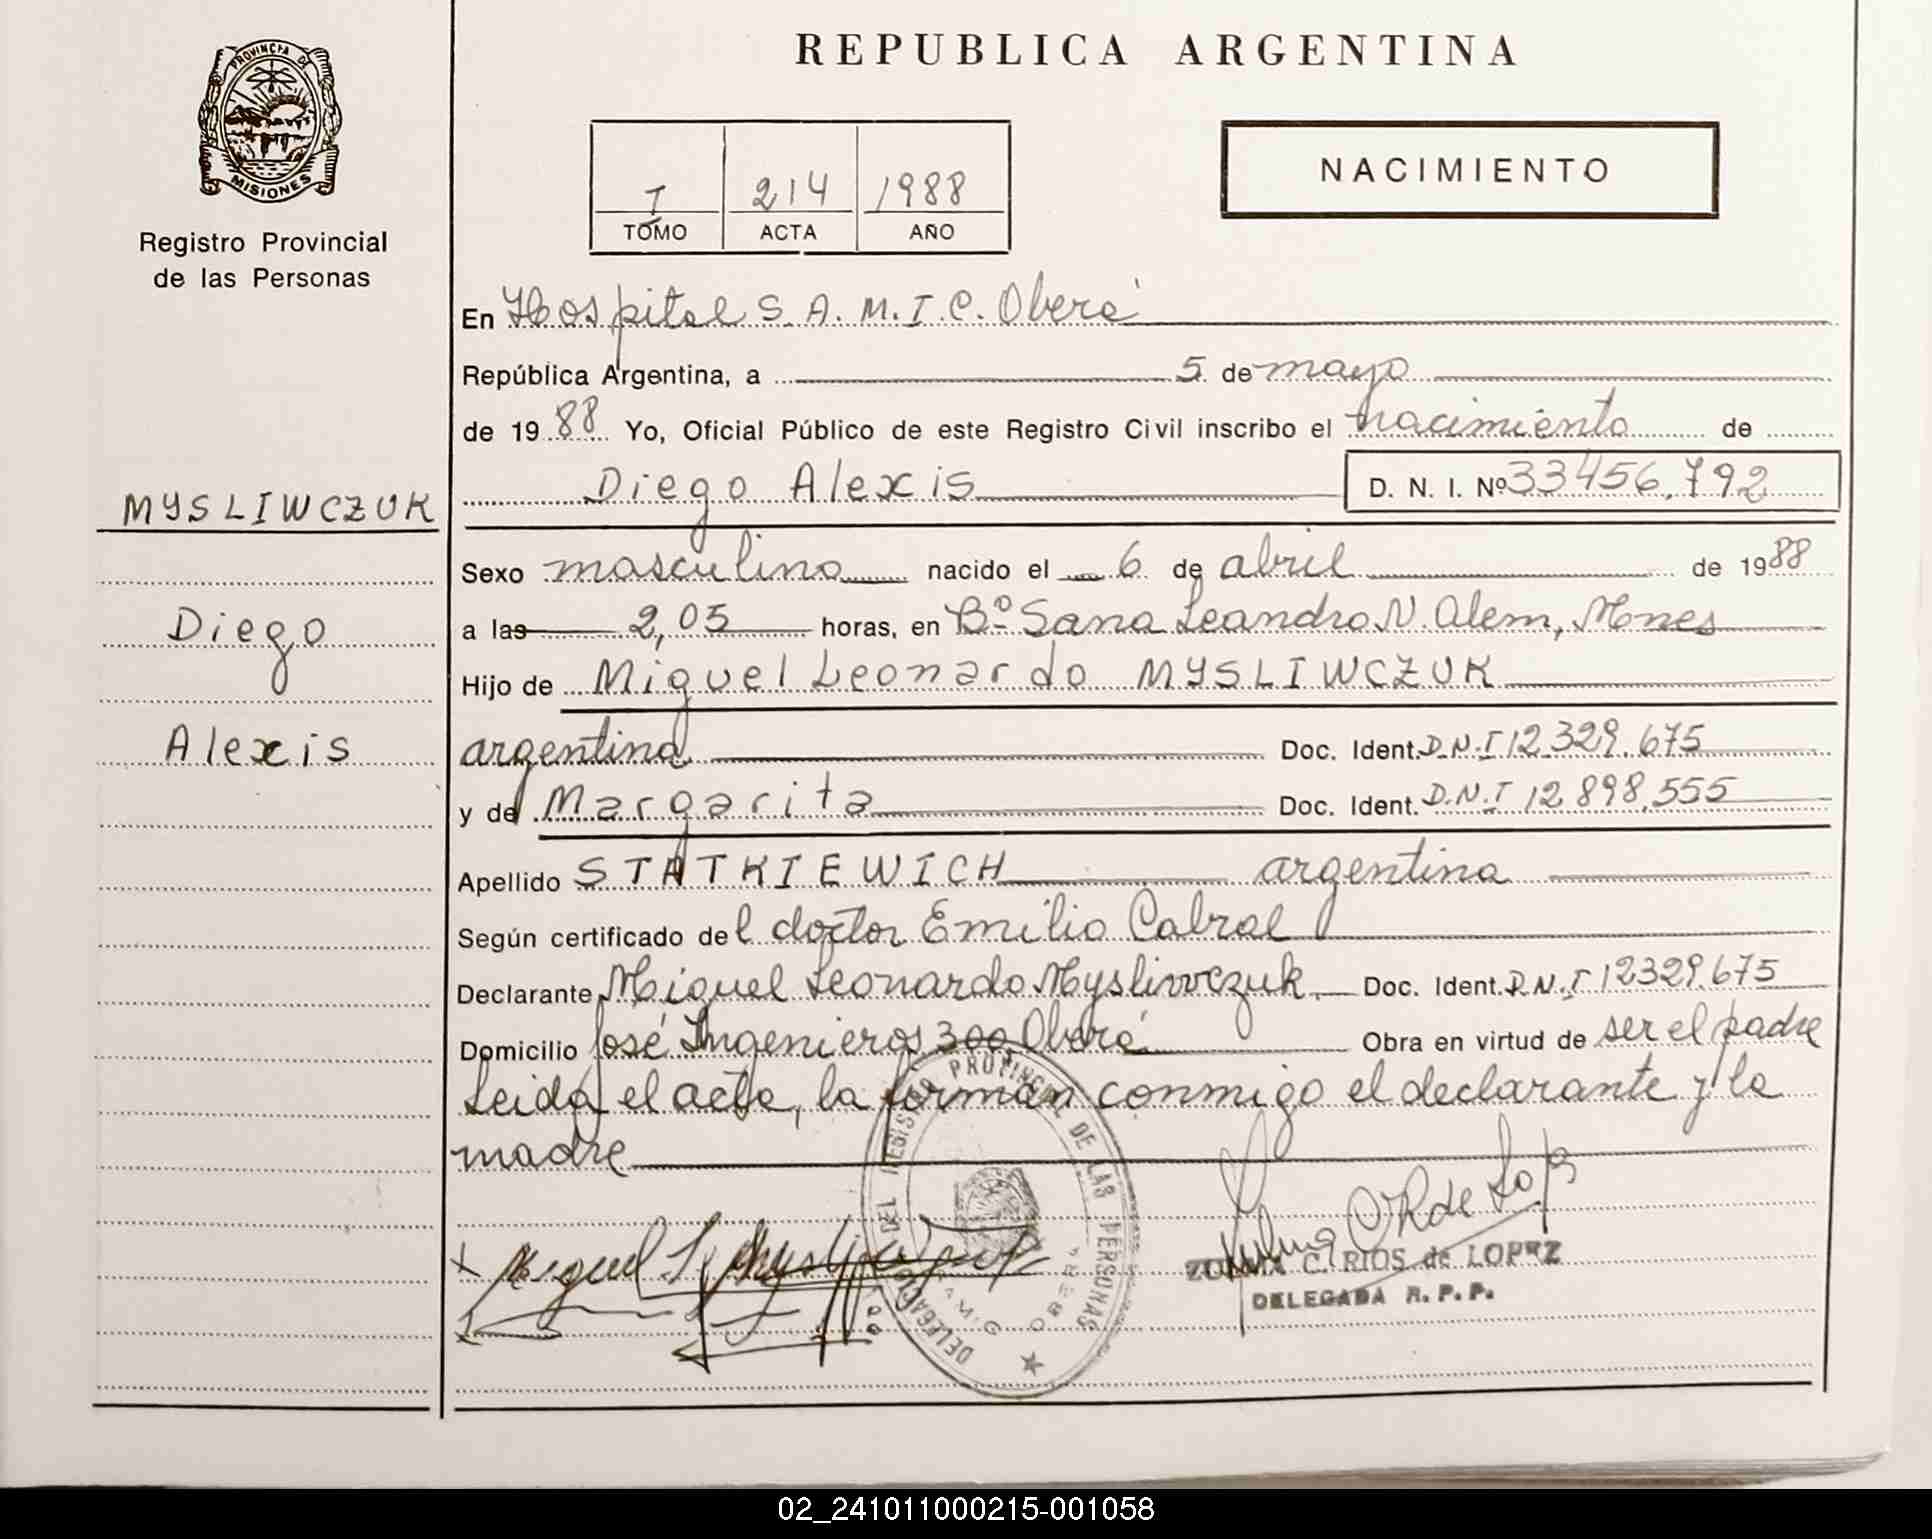 REPUBLICA ARGENTINA
PROVINCIA DE
MISIONES
Registro Provincial
de las Personas
T 214 1988
TOMO ACTA AÑO
NACIMIENTO
En Hospital S.A.M.I.C. Oberá
República Argentina, a 5 de mayo
de 1988 Yo, Oficial Público de este Registro Civil inscribo el nacimiento de
Diego Alexis D. N. I. Nº 33456.792
MYSLIWCZUK
Diego
Alexis
Sexo masculino nacido el 6 de abril de 1988
a las 2,05 horas, en Bº Sana Leandro N. Alem, Mnes
Hijo de Miguel Leonardo MYSLIWCZUK
argentina Doc. Ident. D.N.I 12.329.675
y de Margarita Doc. Ident. D.N.I 12.898.555
Apellido STATKIEWICH argentina
Según certificado del doctor Emilio Cabral
Declarante Miguel Leonardo Mysliwczuk Doc. Ident. D.N.I 12329.675
Domicilio José Ingenieros 300 Oberá Obra en virtud de ser el padre
Leida el acta, la forman conmigo el declarante y la
madre
DELEGACION DEL REGISTRO PROVINCIAL DE LAS PERSONAS
OBERA
Miguel L.
C. RIOS de LOPEZ
DELEGADA R. P. P.
02_241011000215-001058